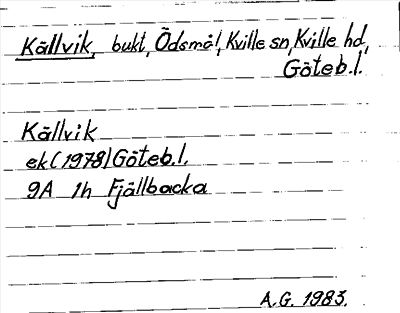 Källvik, bukt, Ödsmål, Kville sn, Kville hd,
Göteb.l.
Källvik
ek (1978) Göteb.l.
9A 1h Fjällbacka
A.G. 1983.